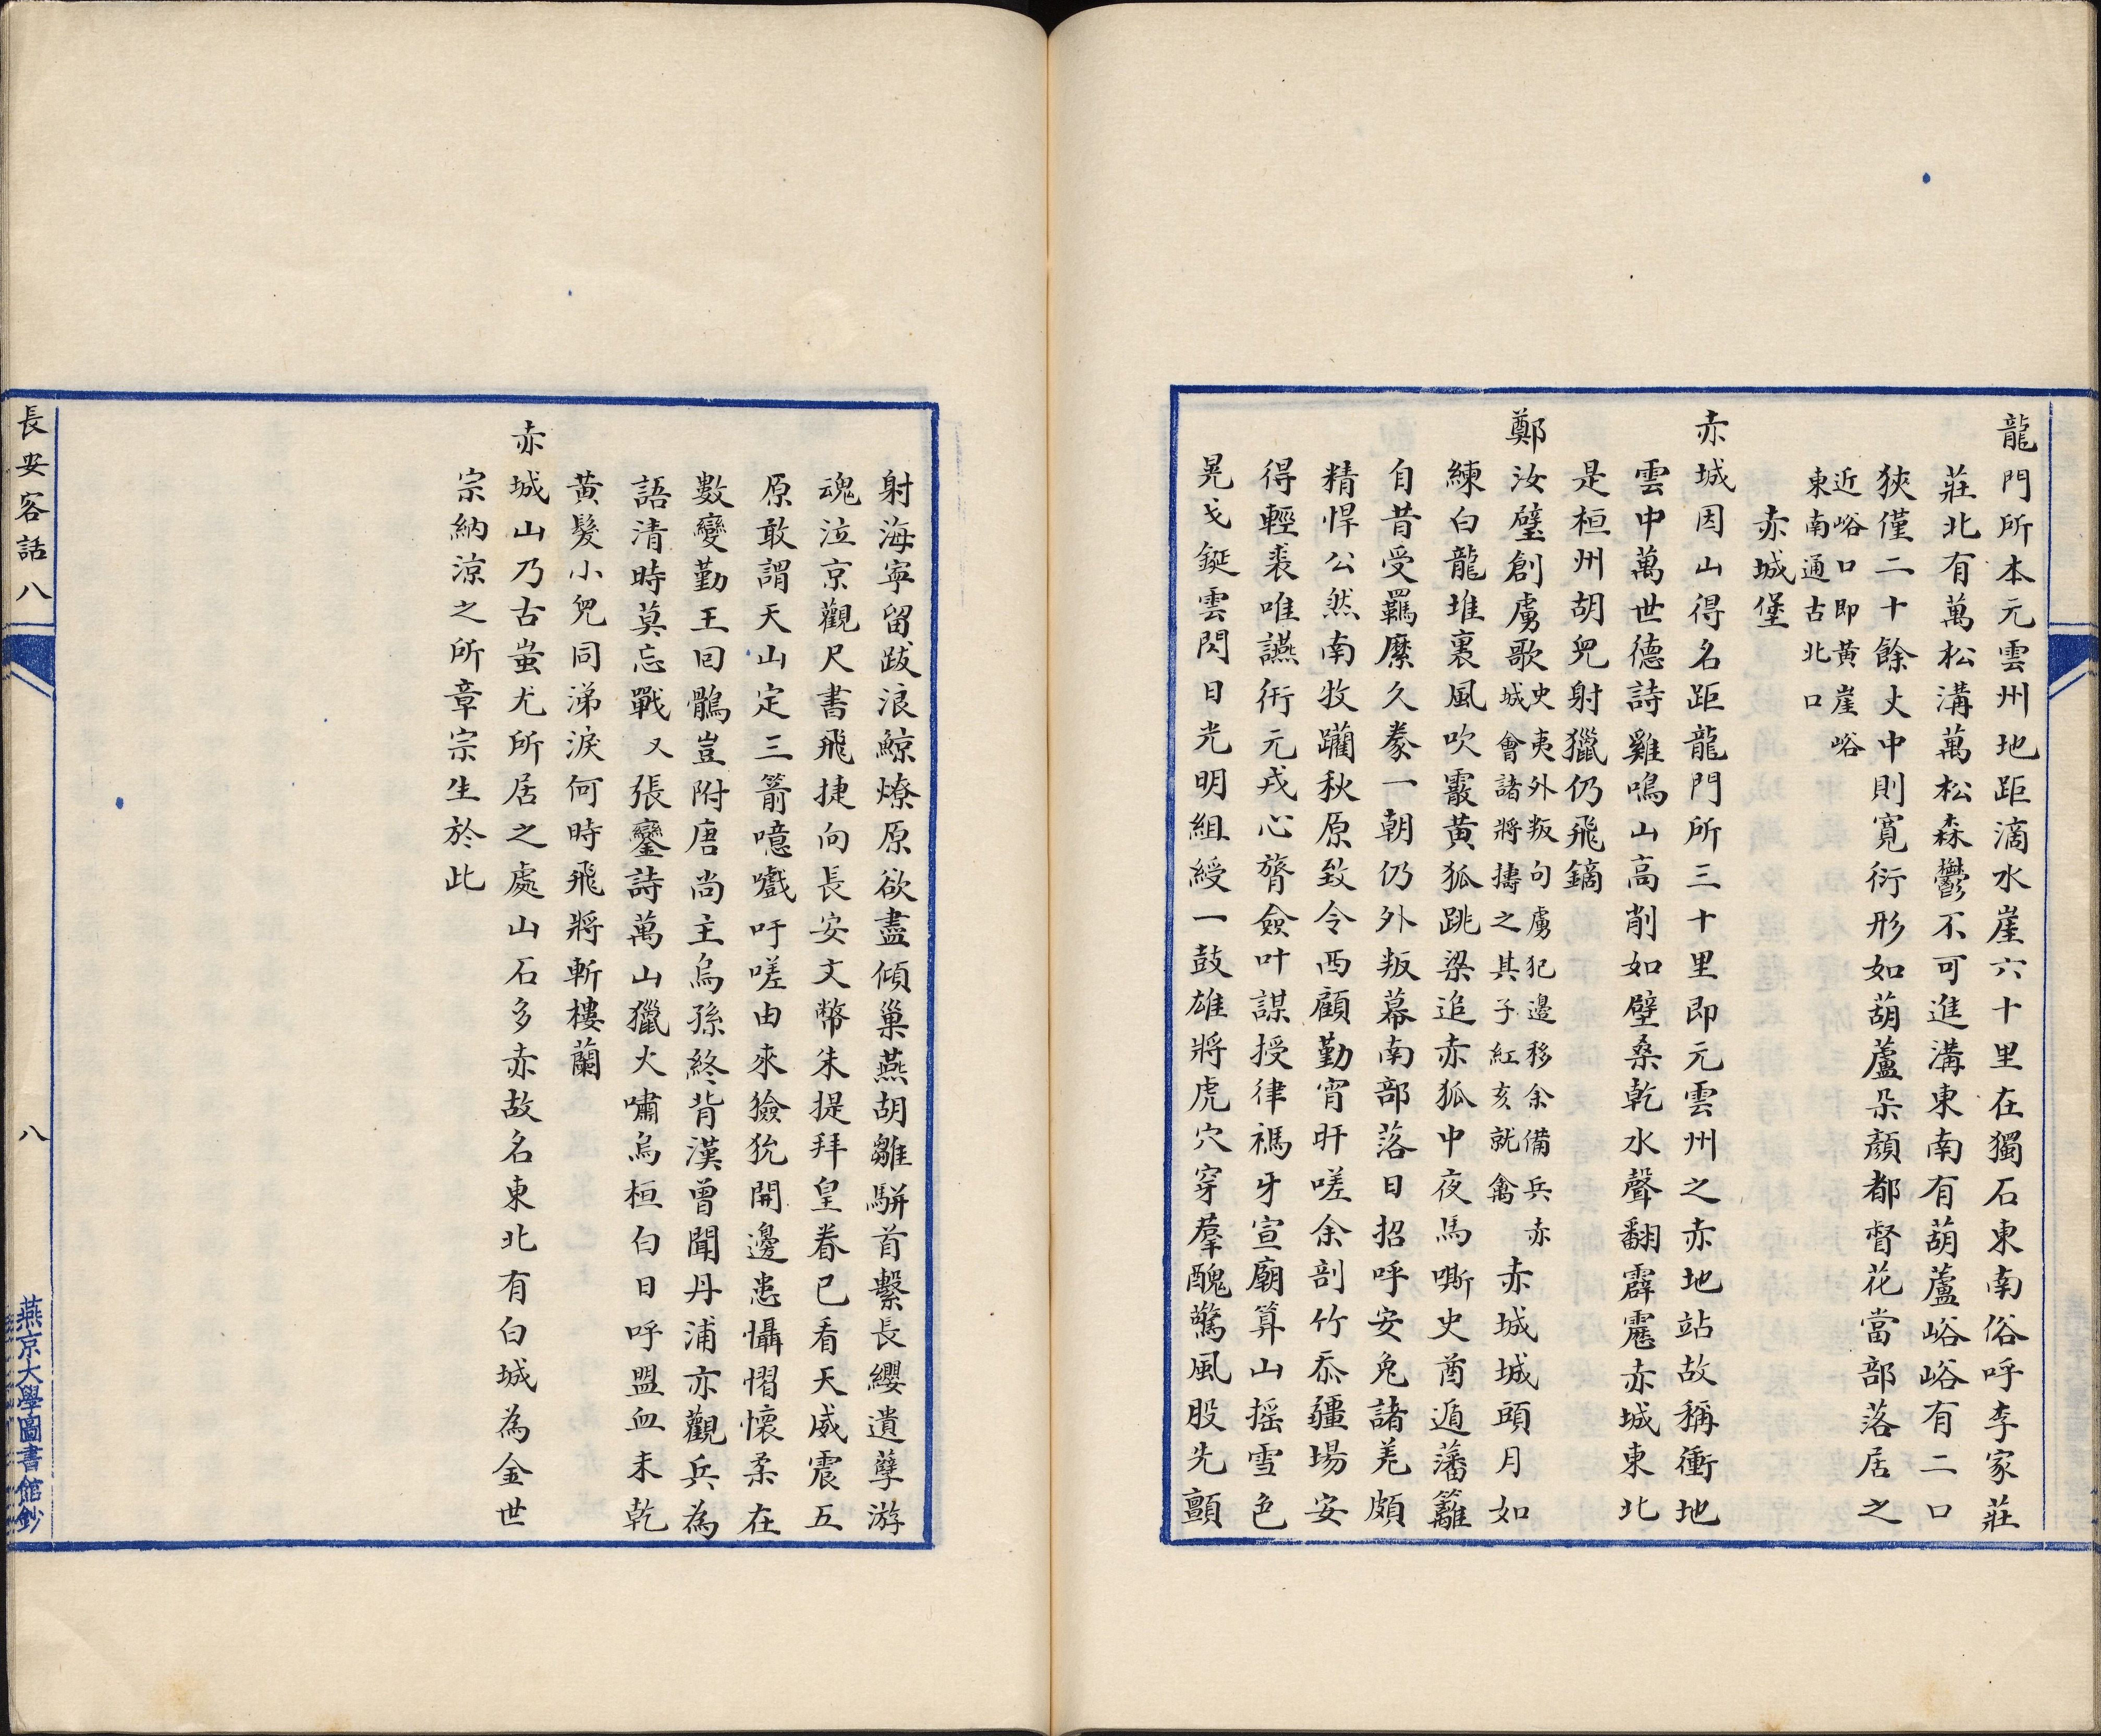 龍門所本元雲州地距滴水崖六十里在獨石東南俗呼李家莊
莊北有萬松溝萬松森鬱不可進溝東南有葫蘆峪峪有二口
狹僅二十餘丈中則寬衍形如葫蘆朵顏都督花當部落居之
近峪口即黃崖峪
東南通古北口
赤城堡
赤城因山得名距龍門所三十里即元雲州之赤地站故稱衝地
雲中萬世德詩雞鳴山高削如壁桑乾水聲翻霹靂赤城東北
是桓州胡兒射獵仍飛鏑
鄭汝璧創虜歌
史夷外叛句虜犯邊移余備兵赤
城會諸將擣之其子紅亥就禽
赤城城頭月如
練白龍堆裏風吹霰黃狐跳梁追赤狐中夜馬嘶史酋遁藩籬
自昔受羈縻久豢一朝仍外叛幕南部落日招呼安兔諸羌頗
精悍公然南牧躪秋原致令西顧勤宵旰嗟余剖竹忝疆場安
得輕裘唯讌衎元戎心膂僉叶謀授律禡牙宣廟算山搖雪色
晃戈鋋雲閃日光明組綬一鼓雄將虎穴穿羣醜驚風股先顫
射海寧留跋浪鯨燎原欲盡傾巢燕胡雛駢首繫長纓遺孽游
魂泣京觀尺書飛捷向長安文幣朱提拜皇眷已看天威震五
原敢謂天山定三箭噫嚱吁嗟由來獫狁開邊患懾慴懷柔在
數變勤王回鶻豈附唐尚主烏孫終背漢曾聞丹浦亦觀兵為
語清時莫忘戰又張鑾詩萬山獵火嘯烏桓白日呼盟血未乾
黃髮小兒同涕淚何時飛將斬樓蘭
赤城山乃古蚩尤所居之處山石多赤故名東北有白城為金世
宗納涼之所章宗生於此
長安客話八
八
燕京大學圖書館鈔